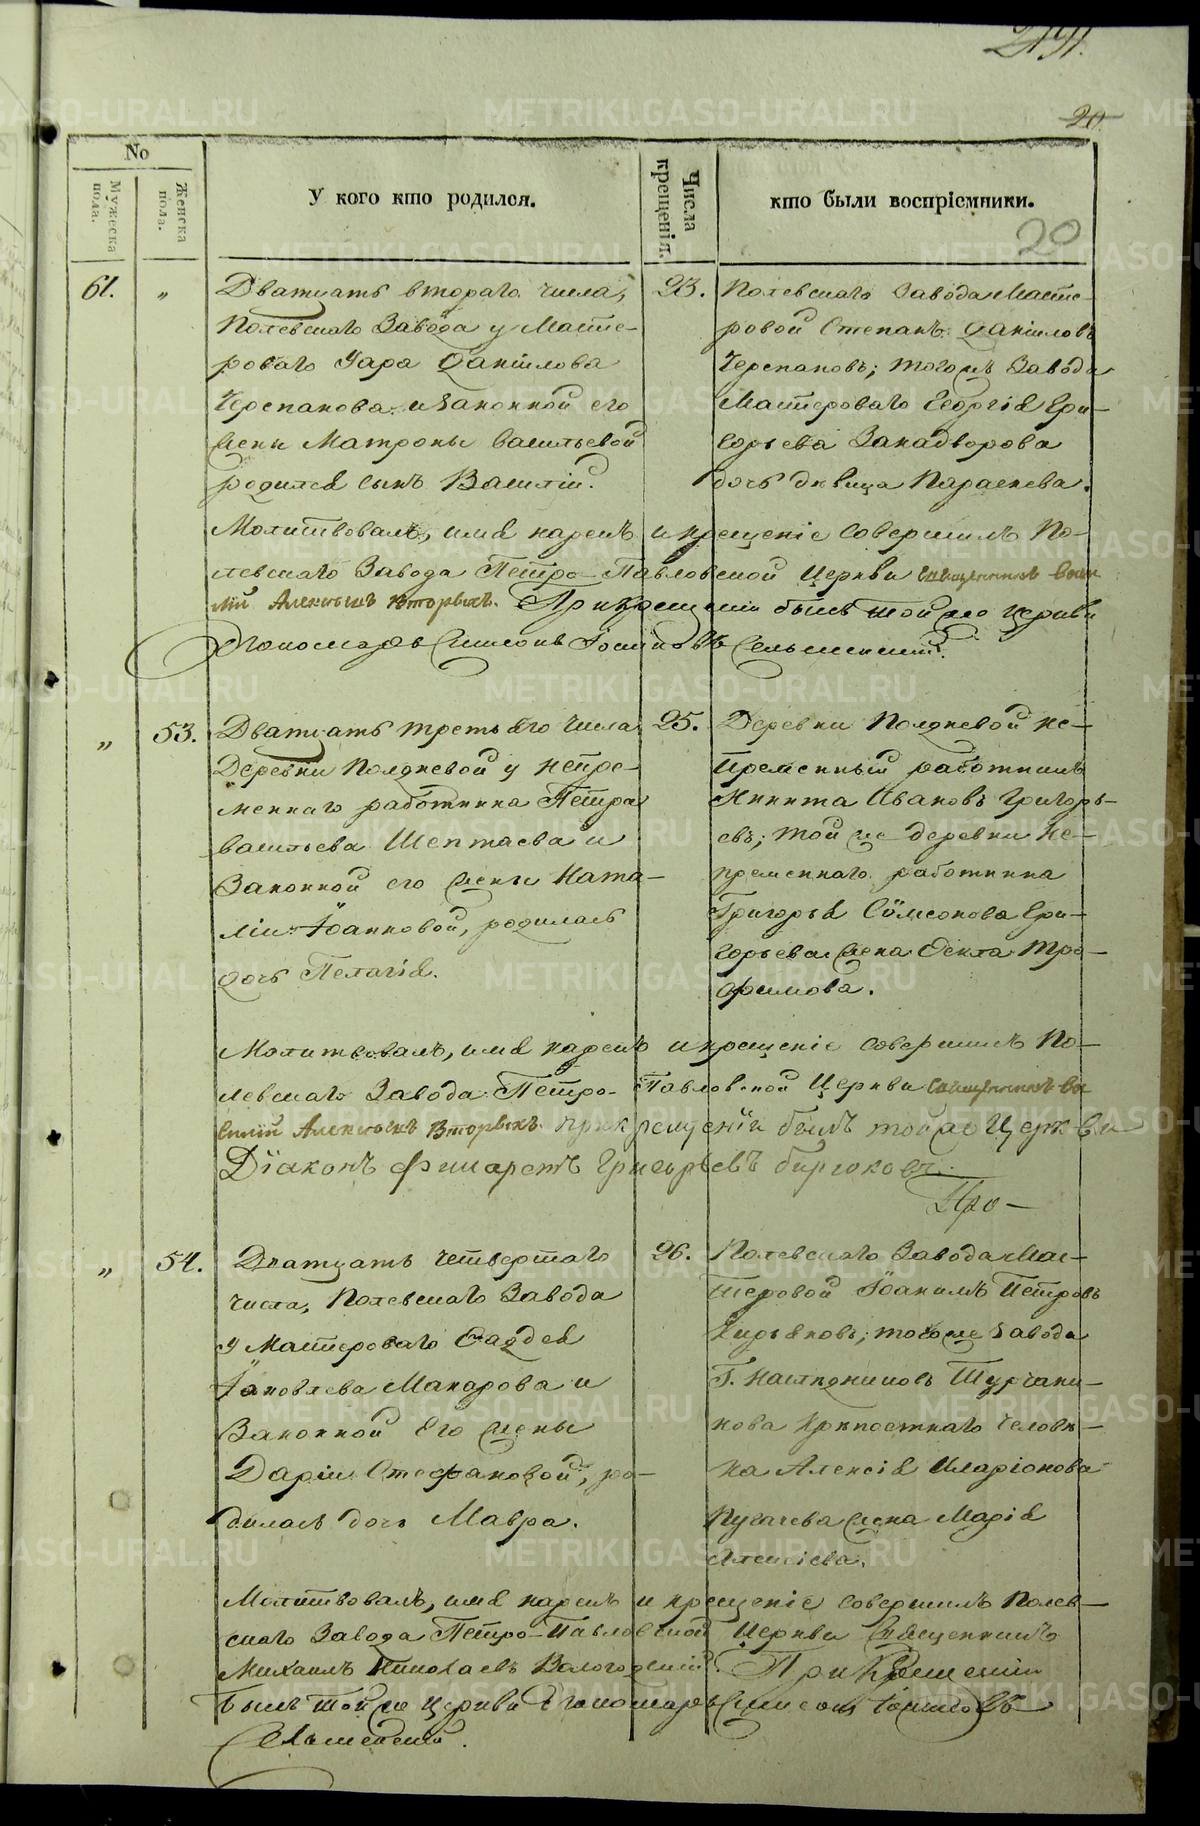 20
20
No
Мужеска пола.
Женска пола.
У кого кто родился.
Числа крещенія.
кто были воспріемники.
61. „
Дватцать втораго числа,
Полевскаго Завода у Масте-
роваго Уара Даніилова
Черепанова и законной его
жены Матроны Васильевой
родился сынъ Василій.
23.
Полевскаго Завода Масте-
ровой Степанъ Даніиловъ
Черепановъ; тогожъ Завода
Мастероваго Георгія Гри-
горьева Западворова
дочь дѣвица Параскева.
Молитвовалъ, имя нарекъ и крещеніе совершилъ По-
левскаго Завода Петро-Павловской Церкви Священникъ Васи-
лій Алексѣевъ Вторыхъ. При крещеніи былъ той же Церкви
Пономарь Симеонъ Сельменскій.
„ 53.
Дватцать третьяго числа
Деревни Полдневой у непре-
меннаго работника Петра
Васильева Шептаева и
Законной его жены Ната-
ліи Іоанновой, родилась
дочь Пелагія.
25.
Деревни Полдневой не-
пременный работникъ
Никита Ивановъ Григорь-
евъ; той же деревни не-
пременнаго работника
Григорья Сѵмеонова Гри-
горьева жена Фекла Тро-
фимова.
Молитвовалъ, имя нарекъ и крещеніе совершилъ По-
левскаго Завода Петро-Павловской Церкви Священникъ Ва-
силій Алексѣевъ Вторыхъ. При крещеніи былъ той же Церкви
Діаконъ Филаретъ Григорьевъ Бирюковъ.
„ 54.
Дватцать четвертаго
числа, Полевскаго Завода
у Мастероваго Фаддея
Іаковлева Макарова и
Законной Его жены
Даріи Стефановой, ро-
дилась дочь Мавра.
26.
Полевскаго Завода Мас-
теровой Іоакимъ Петровъ
Кирьяковъ; тогоже Завода
Г. Наслѣдниковъ Турчани-
нова крѣпостнаго человѣ-
ка Алексія Иларіонова
Пугачева жена Марія
Алексіева.
Молитвовалъ, имя нарекъ и крещеніе совершилъ Полев-
скаго Завода Петро-Павловской Церкви Священникъ
Михаилъ Николаевъ Вологодскій. При крещеніи
былъ той же Церкви Пономарь Симеонъ
Сельменскій.
METRIKI.GASO-URAL.RU